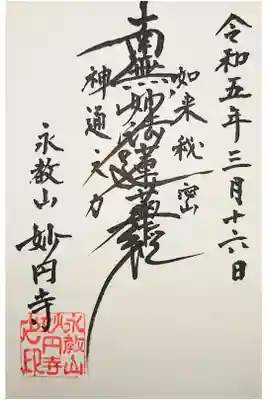 令和五年三月十六日
如来秘密
南無妙法蓮華経
神通之力
永教山 妙円寺
永教山
妙円寺
之印